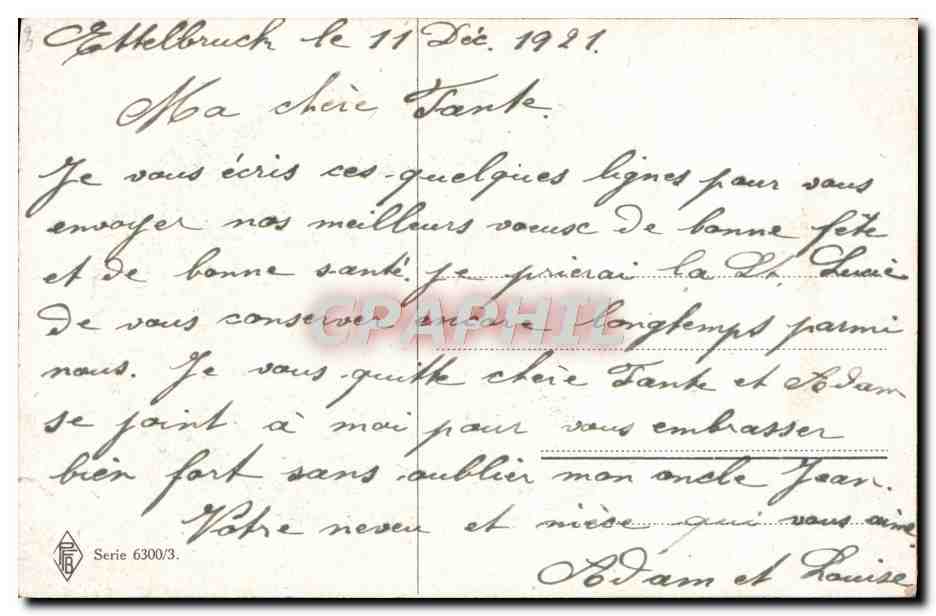 Ettelbruck le 11 Déc. 1921.
Ma chère Tante.
Je vous écris ces quelques lignes pour vous
envoyer nos meilleurs voeux de bonne fête
et de bonne santé. je prierai la St. Lucie
de vous conserver encore longtemps parmi
nous. Je vous quitte chère Tante et Adam
se joint à moi pour vous embrasser
bien fort sans oublier mon oncle Jean.
Votre neveu et nièce qui vous aime
Adam et Louise
PFB
Serie 6300/3.
CPAPHIL